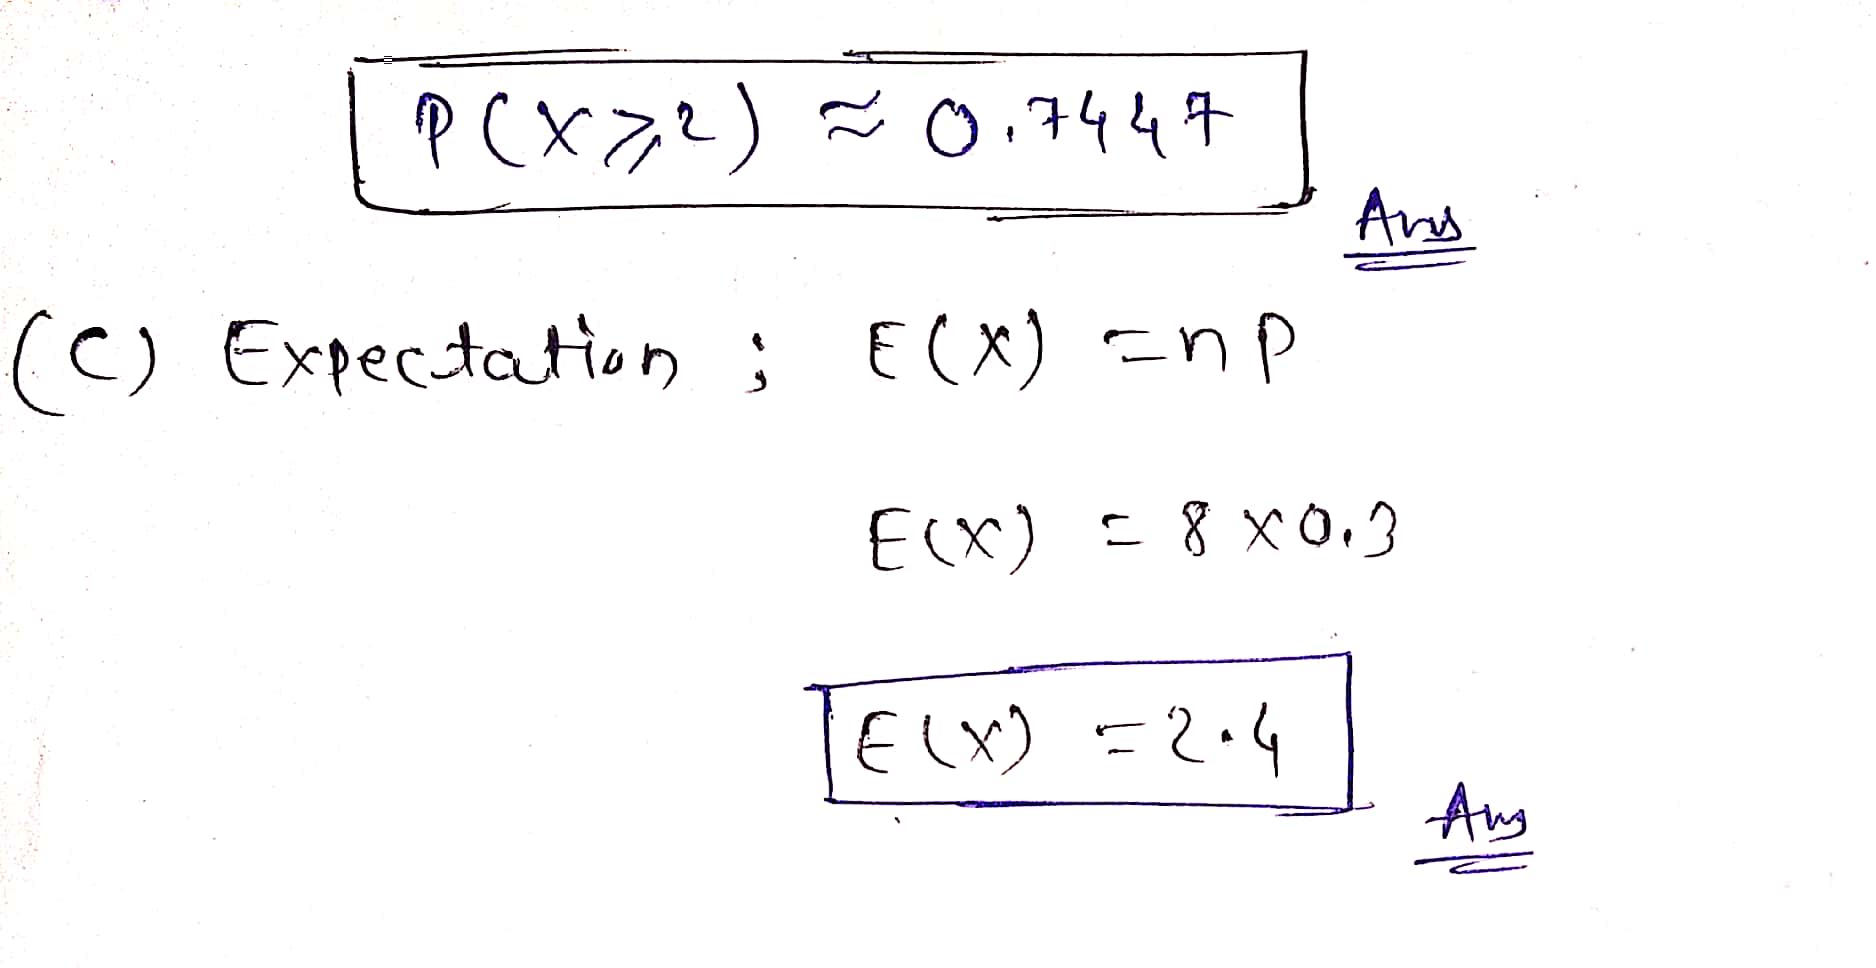 P(X⩾2) ≈ 0.7447
Ans
(C) Expectation ; E(X) = np
E(X) = 8 × 0.3
E(X) = 2.4
Ans